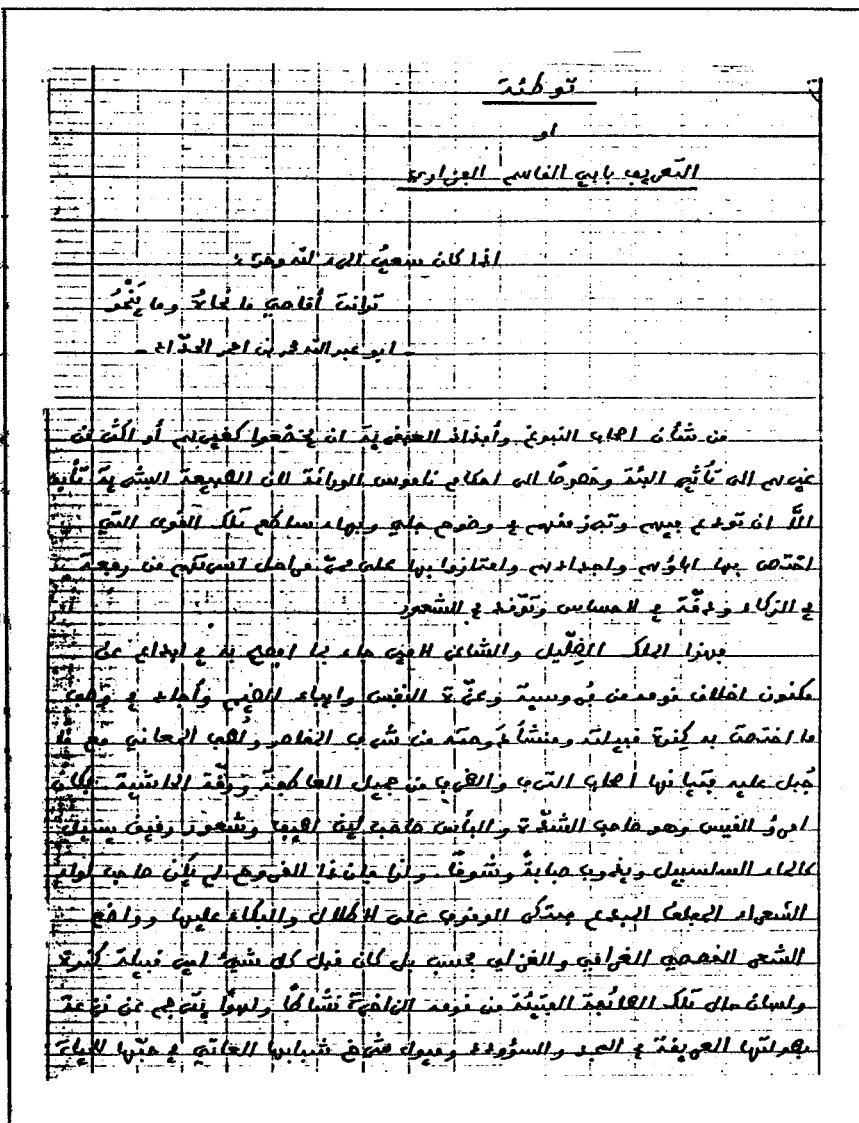 توطئة
او
التعريف بابي القاسم الفزاري
اذا كان سعيُ المرء لله وحده
تدانت أقاصي ما نحاهُ وما يَنْحُو
- ابو عبد الله محمد بن احمد الحدّاد -
من شأن اصحاب النبوغ وأفذاذ العبقرية ان يخضعوا كغيرهم أو اكثر من
غيرهم الى تأثير البئة وخصوصًا الى احكام ناموس الوراثة لان الطبيعة البشرية تأبى
الاّ ان تودع فيهم وتبرز منهم في وضوح جلي وبهاء ساطع تلك القوى التي
اختص بها اباؤهم واجدادهم وامتازوا بها على ممرّ مراحل اسرتهم من رفعة
في الذكاء ودقّة في الاحساس وتوقّد في الشعور
فهذا الملك الضِلّيل والشاعر الامير جاء بما افصح به في ابداع عن
مكنون اخلاق قومه من فروسية وعزّة النفس واباء الضيم وأجاد في وصف
ما اختصت به كِندة قبيلته ومنشأ دَوحته من شرف العناصر ولُطف المعاني مع ما
جُبل عليه فتيانها أصحاب الترف والظرف من جميل العاطفة ورقّة الحاشية فكان
امرؤ القيس وهو صاحب الشدّة والبأس صاحب لين لطيف وشعور رقيق يسيل
كالماء السلسبيل ويذوب صبابةً وشوقًا ولذا فإن ذا القروح لم يكن صاحب لواء
الشعراء المبدع مبتكر الوقوف على الاطلال والبكاء عليها وواضع
الشعر القصصي الغرامي والغزلي فحسب بل كان قبل كل شيئ امير قبيلة كندة
ولسان حال تلك الطائفة الفتيّة من قومه الزاخرة نشاطًا ولهوًا يترجم عن نزعة
بطولتها العريقة في المجد والسؤود وميول شرخ شبابها العاتي في حبّها للحياة